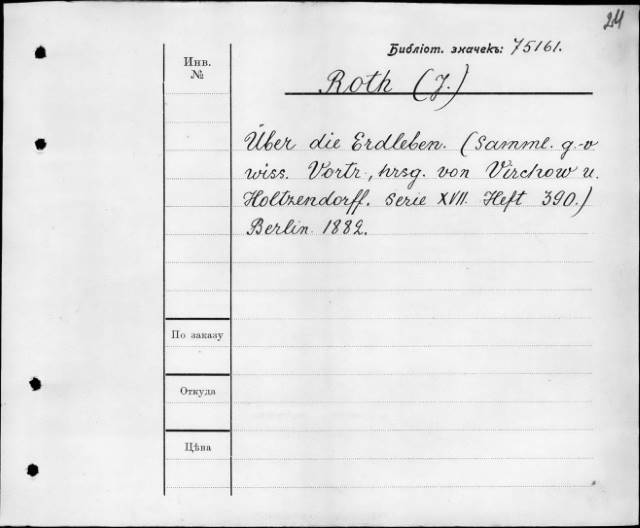 24
Библіот. значекъ: 75161.
Инв. №
Roth (J.)
Über die Erdleben. (Samml. g.-v
wiss. Vortr., hrsg. von Virchow u.
Holtzendorff. Serie XVII. Heft 390.)
Berlin. 1882.
По заказу
Откуда
Цѣна